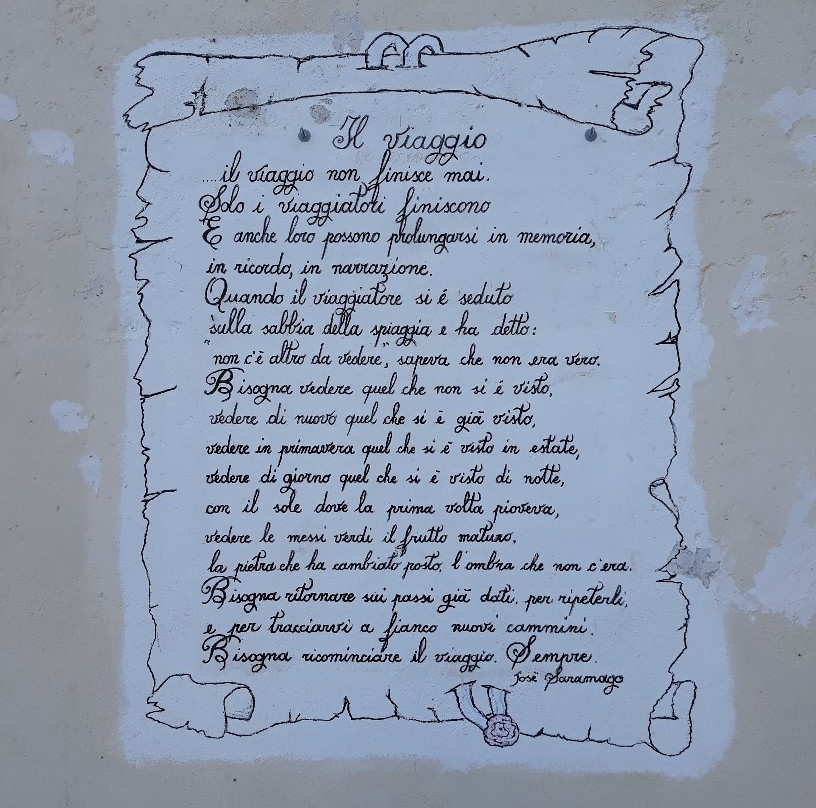 Il viaggio
....il viaggio non finisce mai.
Solo i viaggiatori finiscono
E anche loro possono prolungarsi in memoria,
in ricordo, in narrazione.
Quando il viaggiatore si é seduto
sulla sabbia della spiaggia e ha detto:
"non c'è altro da vedere", sapeva che non era vero.
Bisogna vedere quel che non si é visto,
vedere di nuovo quel che si è già visto,
vedere in primavera quel che si è visto in estate,
vedere di giorno quel che si è visto di notte,
con il sole dove la prima volta pioveva,
vedere le messi verdi il frutto maturo,
la pietra che ha cambiato posto, l'ombra che non c'era.
Bisogna ritornare sui passi già dati, per ripeterli,
e per tracciarvi a fianco nuovi cammini.
Bisogna ricominciare il viaggio. Sempre.
José Saramago